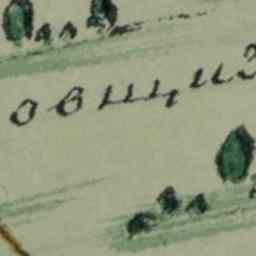 овщиз